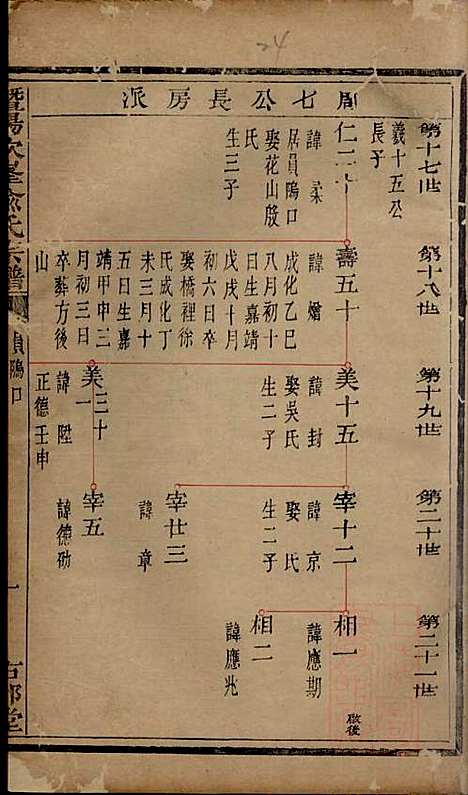 24
周七公長房派
第十七世
義十五公
長子
仁二十
諱柔
居員鴫口
娶花山殷
氏
生三子
第十八世
壽五十
諱燴
成化乙巳
八月初十
日生嘉靖
戊戌十月
初六日卒
娶橋裡徐
氏成化丁
未三月十
五日生嘉
靖甲申三
月初三日
卒葬方後
山
第十九世
美十五
諱封
娶吳氏
生二子
美三十
一
諱陞
正德壬申
第二十世
宰十二
諱京
娶氏
生二子
宰廿三
諱章
宰五
諱德劭
第二十一世
相一
諱應期
啟後
相二
諱應兆
暨陽次峯俞氏宗譜
一